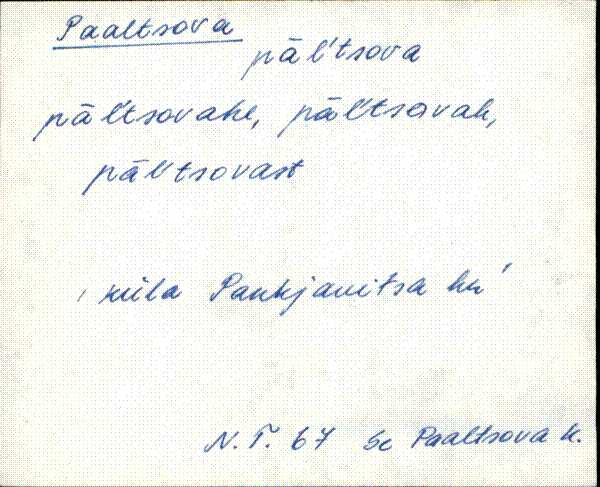 Paaltsova
pāl'tsova
pāl'tsovahe, pāl'tsovah,
pāl'tsovast
küla Pankjavitsa
N. T. 67 Se Paaltsova k.